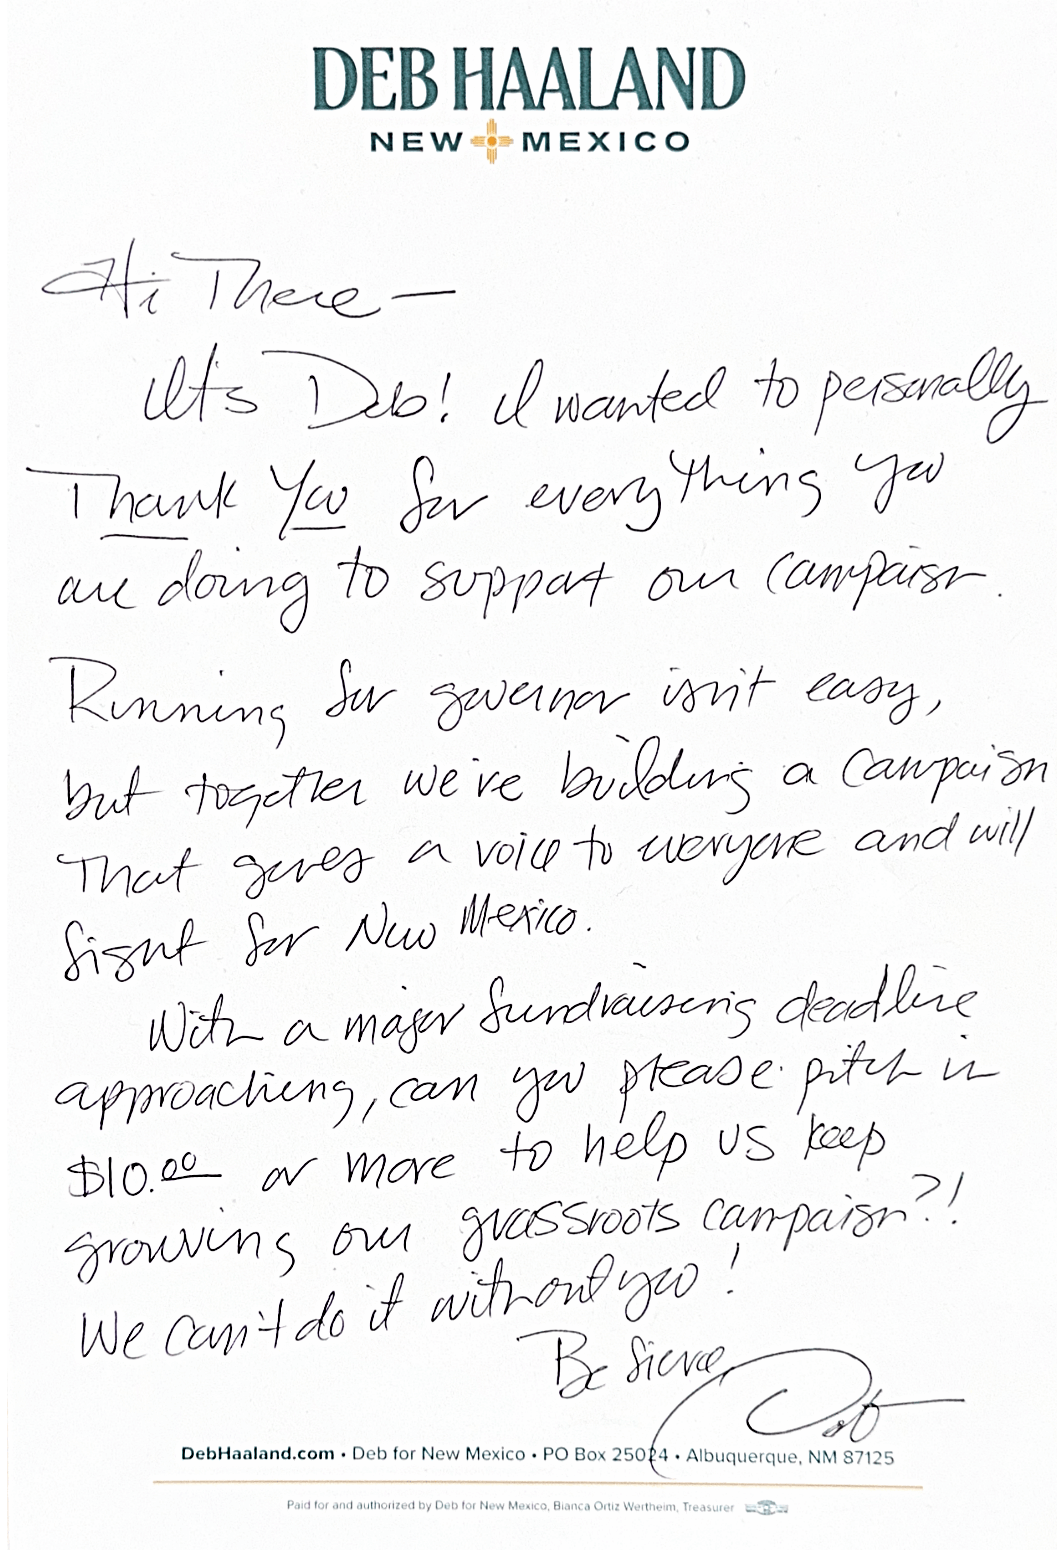 DEB HAALAND
NEW MEXICO
Hi There —
It's Deb! I wanted to personally
Thank You for everything you
are doing to support our campaign.
Running for governor isn't easy,
but together we're building a campaign
That gives a voice to everyone and will
fight for New Mexico.
With a major fundraising deadline
approaching, can you please pitch in
$10.00 or more to help us keep
growing our grassroots campaign?!
We can't do it without you!
Be fierce,
Deb
DebHaaland.com • Deb for New Mexico • PO Box 25024 • Albuquerque, NM 87125
Paid for and authorized by Deb for New Mexico, Bianca Ortiz Wertheim, Treasurer